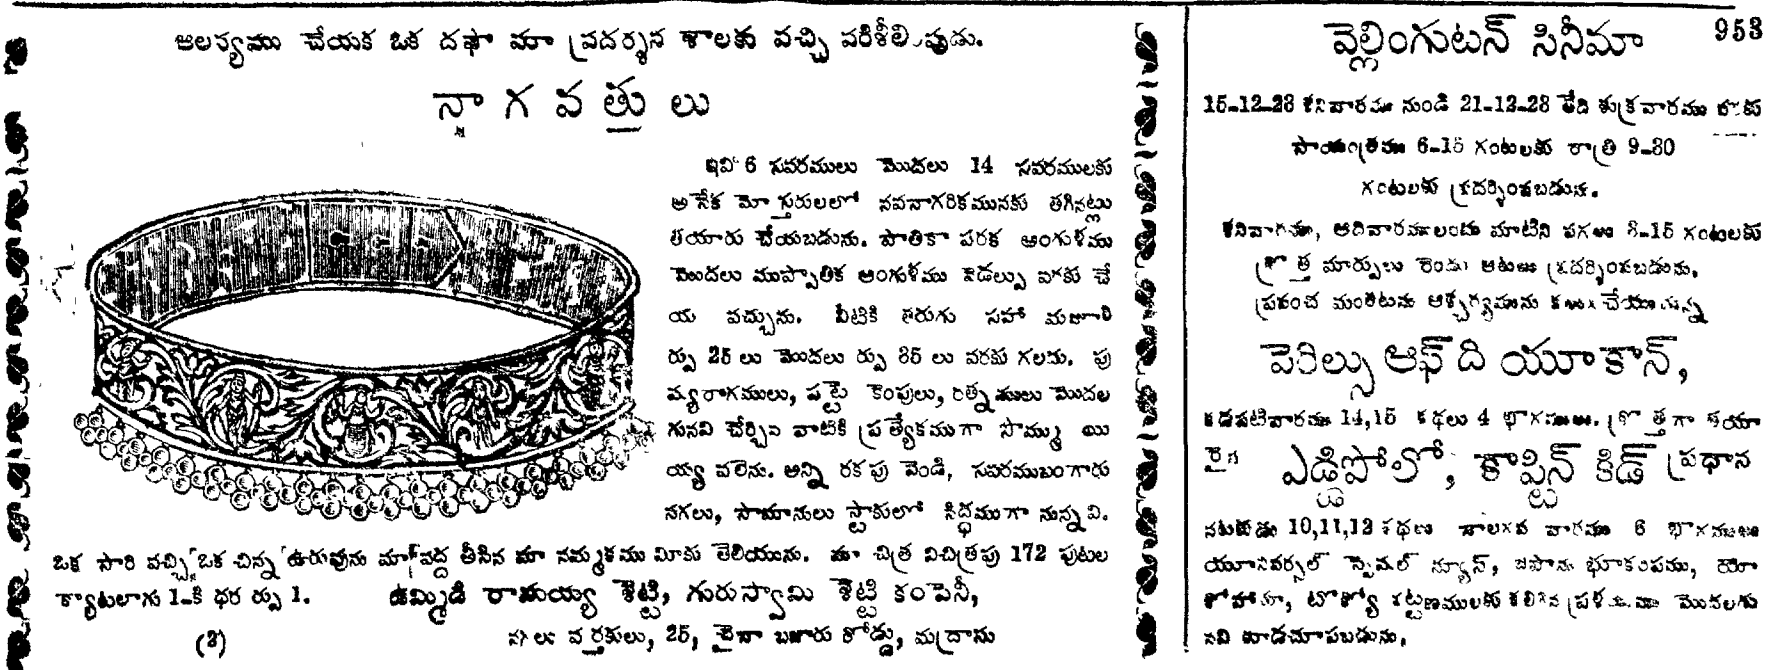 ఆలస్యము చేయక ఒక దఫా మా ప్రదర్శన శాలకు వచ్చి పరిశీలింపుడు.
నాగవత్తులు
ఇవి 6 సవరములు మొదలు 14 సవరములకు
అనేక మోస్తరులలో నవనాగరికమునకు తగినట్లు
తయారు చేయబడును. పాతికా పరక అంగుళము
మొదలు ముప్పాతిక అంగుళము వెడల్పు వరకు చే
య వచ్చును. వీటికి తరుగు సహా మజూరి
ర్పు 25 లు మొదలు ర్పు 35 లు వరకు గలదు. పు
ష్యరాగములు, పట్టె కెంపులు, రత్నములు మొదల
గునవి చేర్చిన వాటికి ప్రత్యేకముగా సొమ్ము యి
య్య వలెను. అన్ని రకపు వెండి, సవరముబంగారు
నగలు, సామానులు స్టాకులో సిద్ధముగా నున్నవి.
ఒక సారి వచ్చి ఒక చిన్న ఉరువును మావద్ద తీసిన మా నమ్మకము మీకు తెలియును. మా చిత్ర విచిత్రపు 172 పుటల
క్యాటలాగు 1-కి ధర ర్పు 1.
ఉమ్మిడి రామయ్య శెట్టి, గురుస్వామి శెట్టి కంపెనీ,
నగలు వర్తకులు, 25, చైనా బజారు రోడ్డు, మద్రాసు
(3)
953
వెల్లింగుటన్ సినీమా
15-12-28 శనివారము నుండి 21-12-28 తేది శుక్రవారము వరకు
సాయంత్రము 6-15 గంటలకు రాత్రి 9-30
గంటలకు ప్రదర్శింపబడును.
శనివారము, ఆదివారములందు మాటిని పగలు 3-15 గంటలకు
క్రొత్త మార్పులు రెండు ఆటలు ప్రదర్శింపబడును.
ప్రపంచ మంతటను ఆశ్చర్యమును కలుగచేయుచున్న
పెరిల్సు ఆఫ్ ది యూకాన్,
కడపటివారము 14,15 కథలు 4 భాగములు. క్రొత్తగా తయా
రైన ఎడ్డీపోలో, కాప్టిన్ కిడ్ ప్రధాన
నటుకుడు 10,11,12 కథలు నాలగవ వారము 6 భాగములు
యూనివర్సల్ స్పెషల్ న్యూస్, జపాను భూకంపము, యో
కోహామా, టోక్యో పట్టణములకు కలిగిన ప్రళయము మొదలగు
నవి కూడచూపబడును.